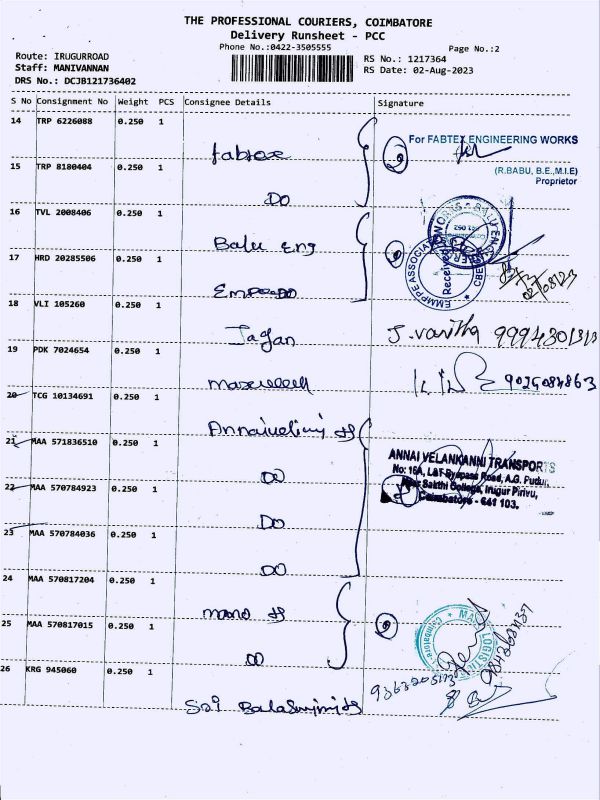 THE PROFESSIONAL COURIERS, COIMBATORE
Delivery Runsheet - PCC
Phone No.:0422-3505555
Page No.:2
Route: IRUGURROAD
Staff: MANIVANNAN
DRS No.: DCJB121736402
RS No.: 1217364
RS Date: 02-Aug-2023
S No Consignment No Weight PCS Consignee Details Signature
14 TRP 6226088 0.250 1
Fabtex
2
For FABTEX ENGINEERING WORKS
(R.BABU, B.E.,M.I.E)
Proprietor
15 TRP 8180404 0.250 1
DO
16 TVL 2008406 0.250 1
Balu Eng
Received
17 HRD 20285506 0.250 1
02/08/23
18 VLI 105260 0.250 1
Jagan
J. Vanitha 9994301313
19 PDK 7024654 0.250 1
9025084863
20 TCG 10134691 0.250 1
21 MAA 571836510 0.250 1
DO
ANNAI VELANKANNI TRANSPORTS
No: 16A, L&T Byepass Road, A.G. Pudur,
Near Sakthi College, Irugur Pirivu,
Coimbatore - 641 103.
22 MAA 570784923 0.250 1
DO
23 MAA 570784036 0.250 1
DO
24 MAA 570817204 0.250 1
mano
25 MAA 570817015 0.250 1
DO
2
26 KRG 945060 0.250 1
Sri